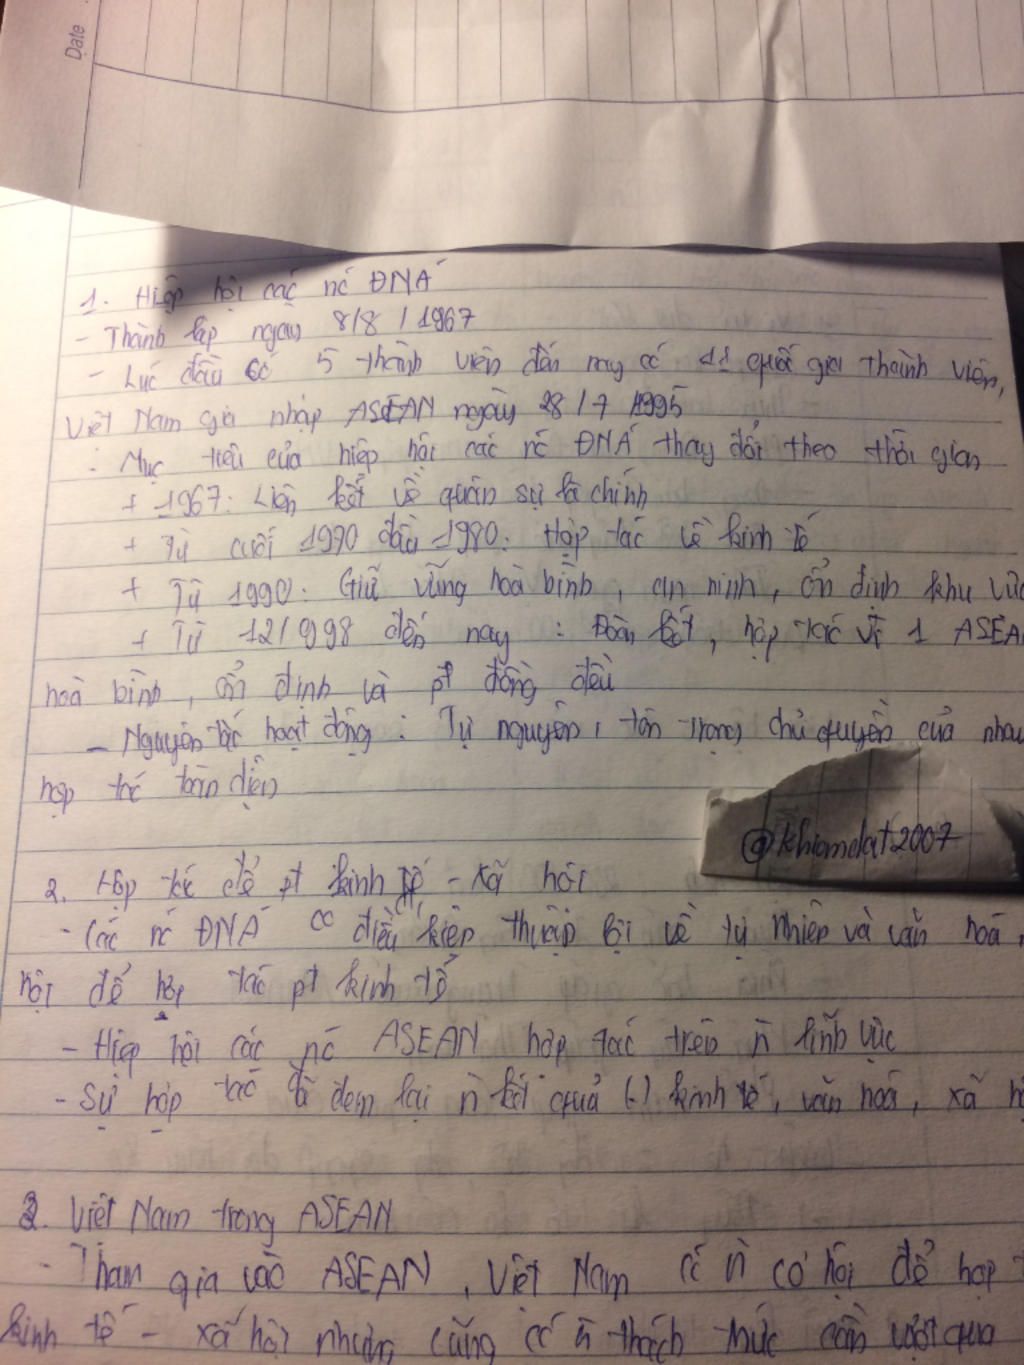 Date
1. Hiệp hội các nc ĐNÁ
- Thành lập ngày 8/8/1967
- Lúc đầu có 5 thành viên đến nay có 11 quốc gia thành viên,
Việt Nam gia nhập ASEAN ngày 28/7/1995
- Mục tiêu của hiệp hội các nc ĐNÁ thay đổi theo thời gian
+ 1967: Liên kết về quân sự là chính
+ Từ cuối 1970 đầu 1980: Hợp tác về kinh tế
+ Từ 1990: Giữ vững hoà bình, an ninh, ổn định khu vực
+ Từ 12/1998 đến nay : Đoàn kết, hợp tác vì 1 ASEAN
hoà bình, ổn định và pt đồng đều
- Nguyên tắc hoạt động : Tự nguyện, tôn trọng chủ quyền của nhau
hợp tác toàn diện
@khiomdat2007
2. Hợp tác để pt kinh tế - xã hội
- Các nc ĐNÁ có điều kiện thuận lợi về tự nhiên và văn hoá,
hội để hợp tác pt kinh tế
- Hiệp hội các nc ASEAN hợp tác trên ñ lĩnh vực
- Sự hợp tác đã đem lại ñ kết quả (-) kinh tế, văn hoá, xã hội
3. Việt Nam trong ASEAN
- Tham gia vào ASEAN, Việt Nam có ñ cơ hội để hợp
kinh tế - xã hội nhưng cũng có ñ thách thức cần vượt qua